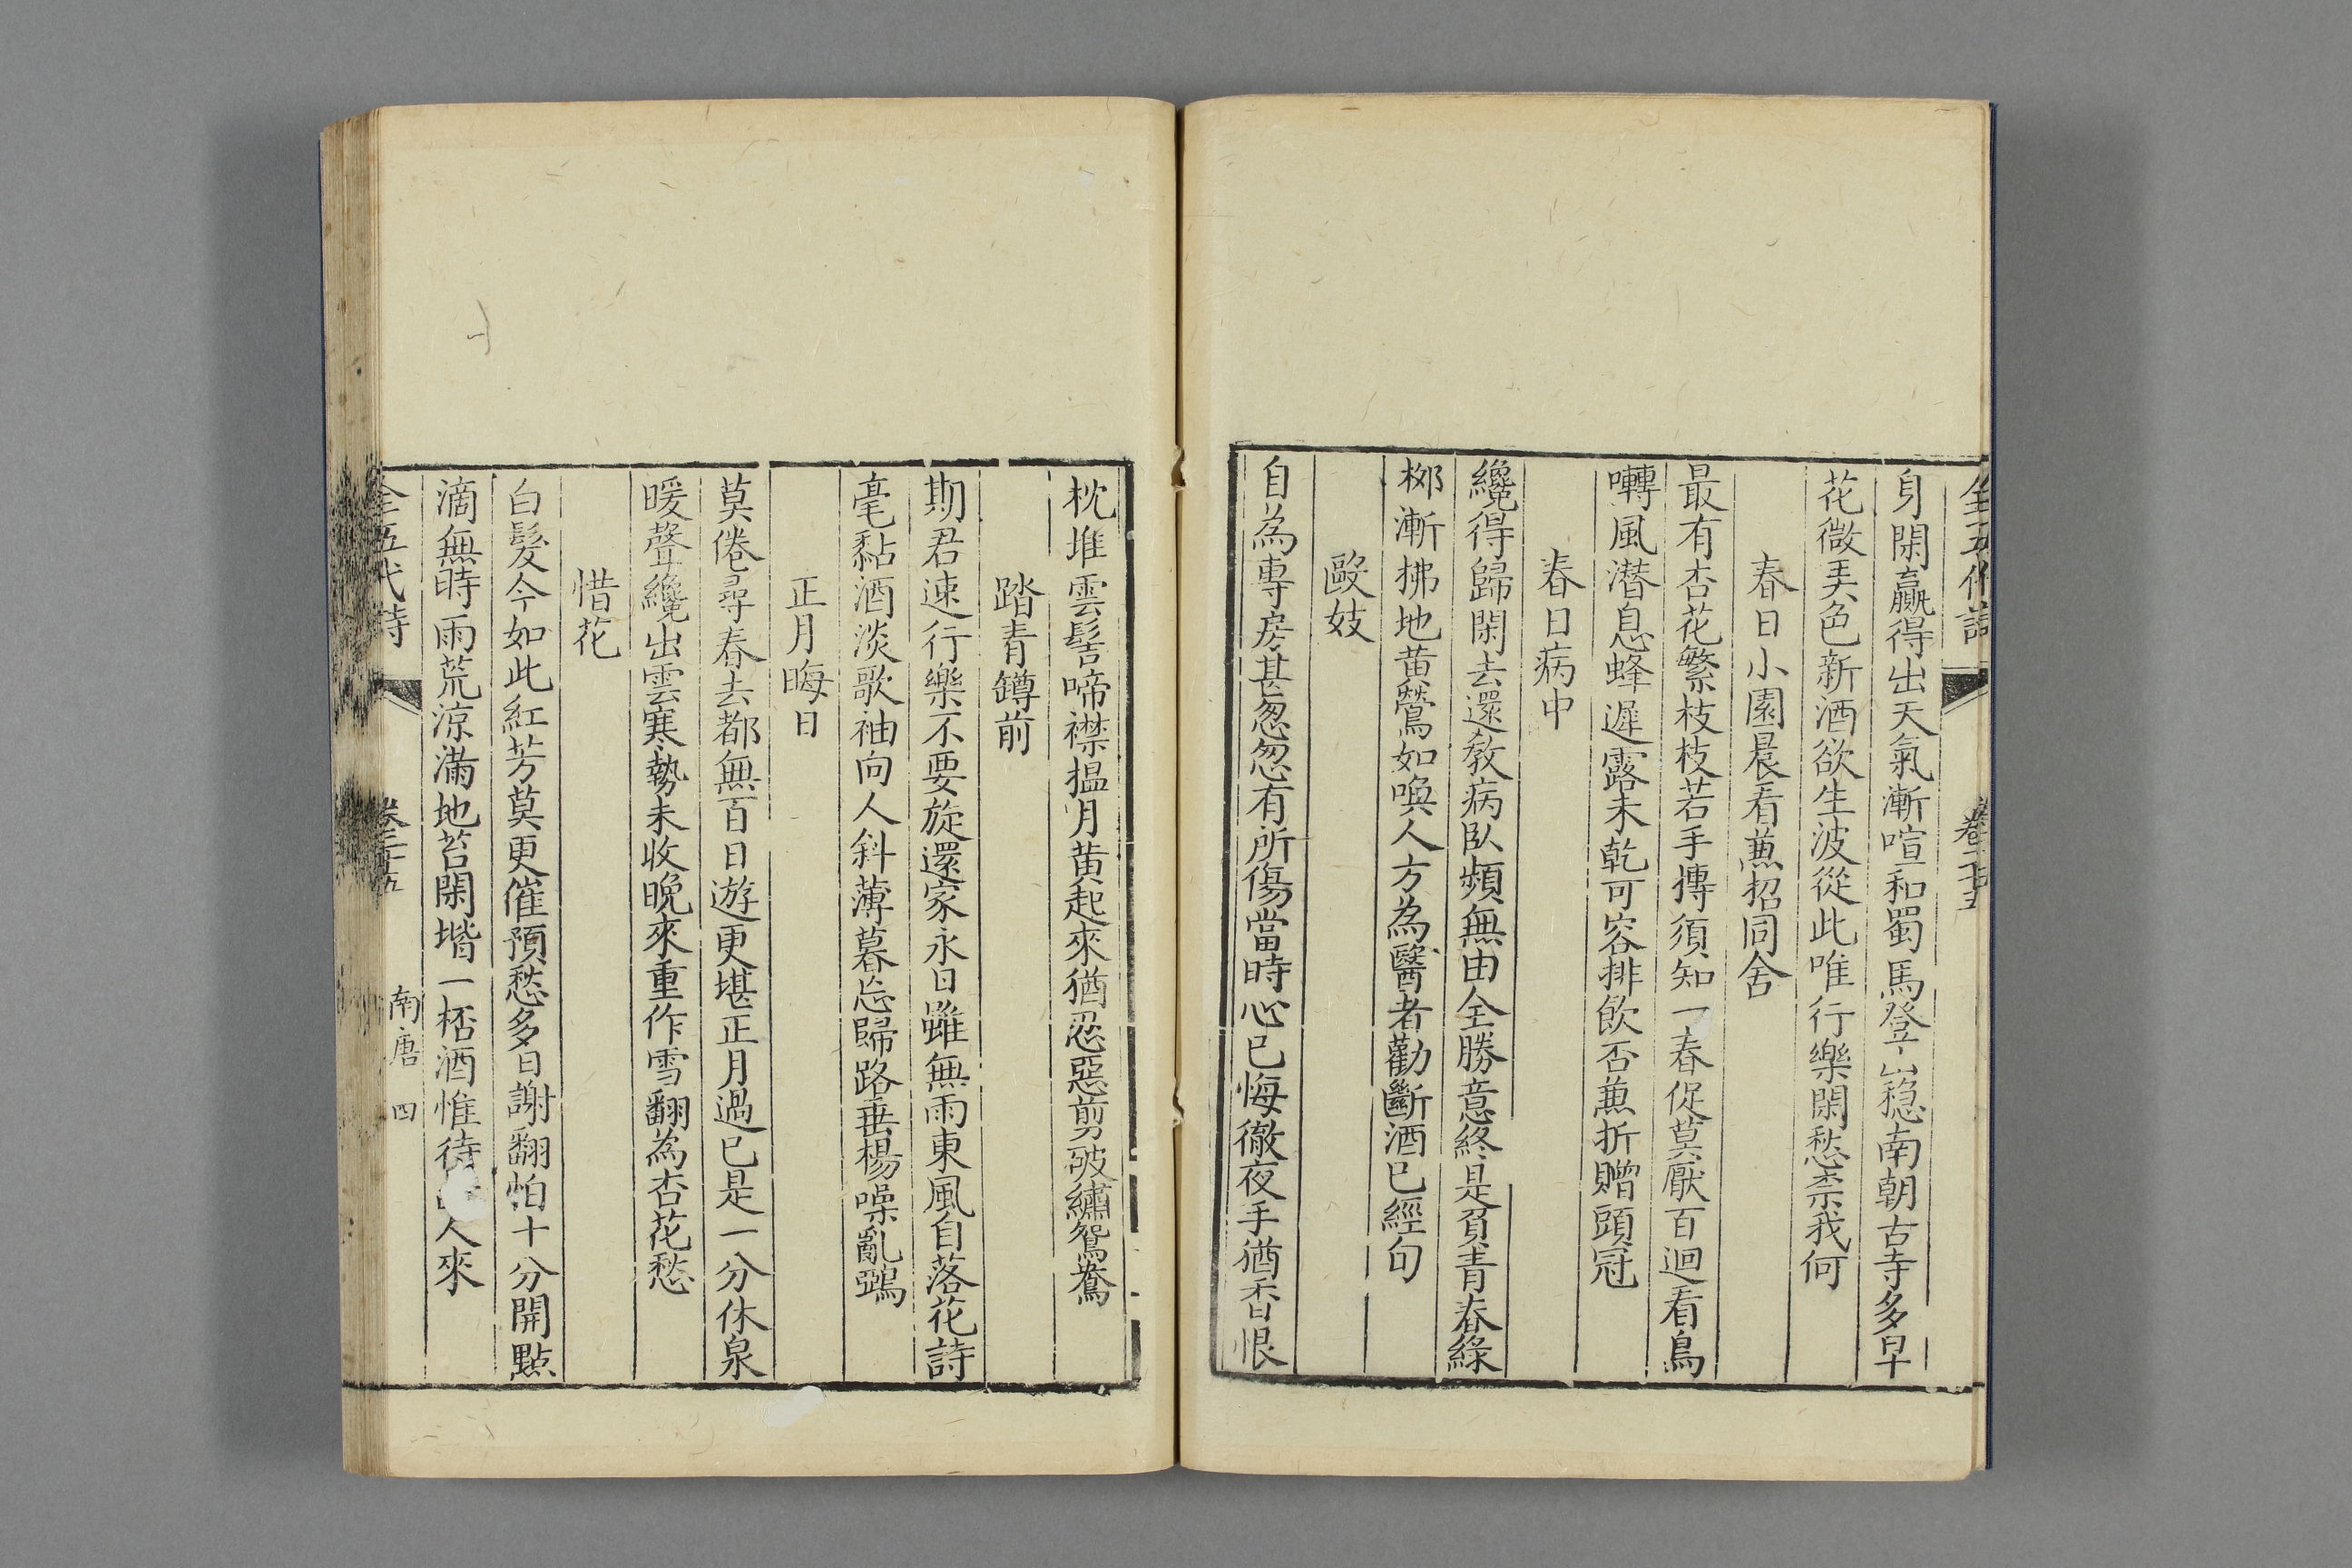 全五代詩
卷三十五
身閑贏得出天氣漸喧和蜀馬登山穏南朝古寺多早
花微美色新酒欲生波從此唯行樂閑愁柰我何
春日小園晨看兼招同舍
最有杏花繁枝枝若手摶須知一春促莫厭百迴看鳥
囀風潜息蜂遲露未乾可容排飲否兼折贈頭冠
春日病中
纔得歸閑去還教病臥頻無由全勝意終是負青春綠
桺漸拂地黄鶯如喚人方為醫者勸斷酒已經旬
毆妓
自為專房甚怱怱有所傷當時心已悔徹夜手猶香恨
枕堆雲髻啼襟搵月黄起來猶忍惡剪破繡鴛鴦
踏青罇前
期君速行樂不要旋還家永日雖無雨東風自落花詩
毫黏酒淡歌袖向人斜薄暮忘歸路垂楊噪亂鵶
正月晦日
莫倦尋春去都無百日遊更堪正月過已是一分休泉
暖聲纔出雲寒勢未收晚來重作雪翻為杏花愁
惜花
白髮今如此紅芳莫更催預愁多日謝翻怕十分開點
滴無時雨荒涼滿地苔閑堦一桮酒惟待人來
全五代詩
卷三十五
南唐 四